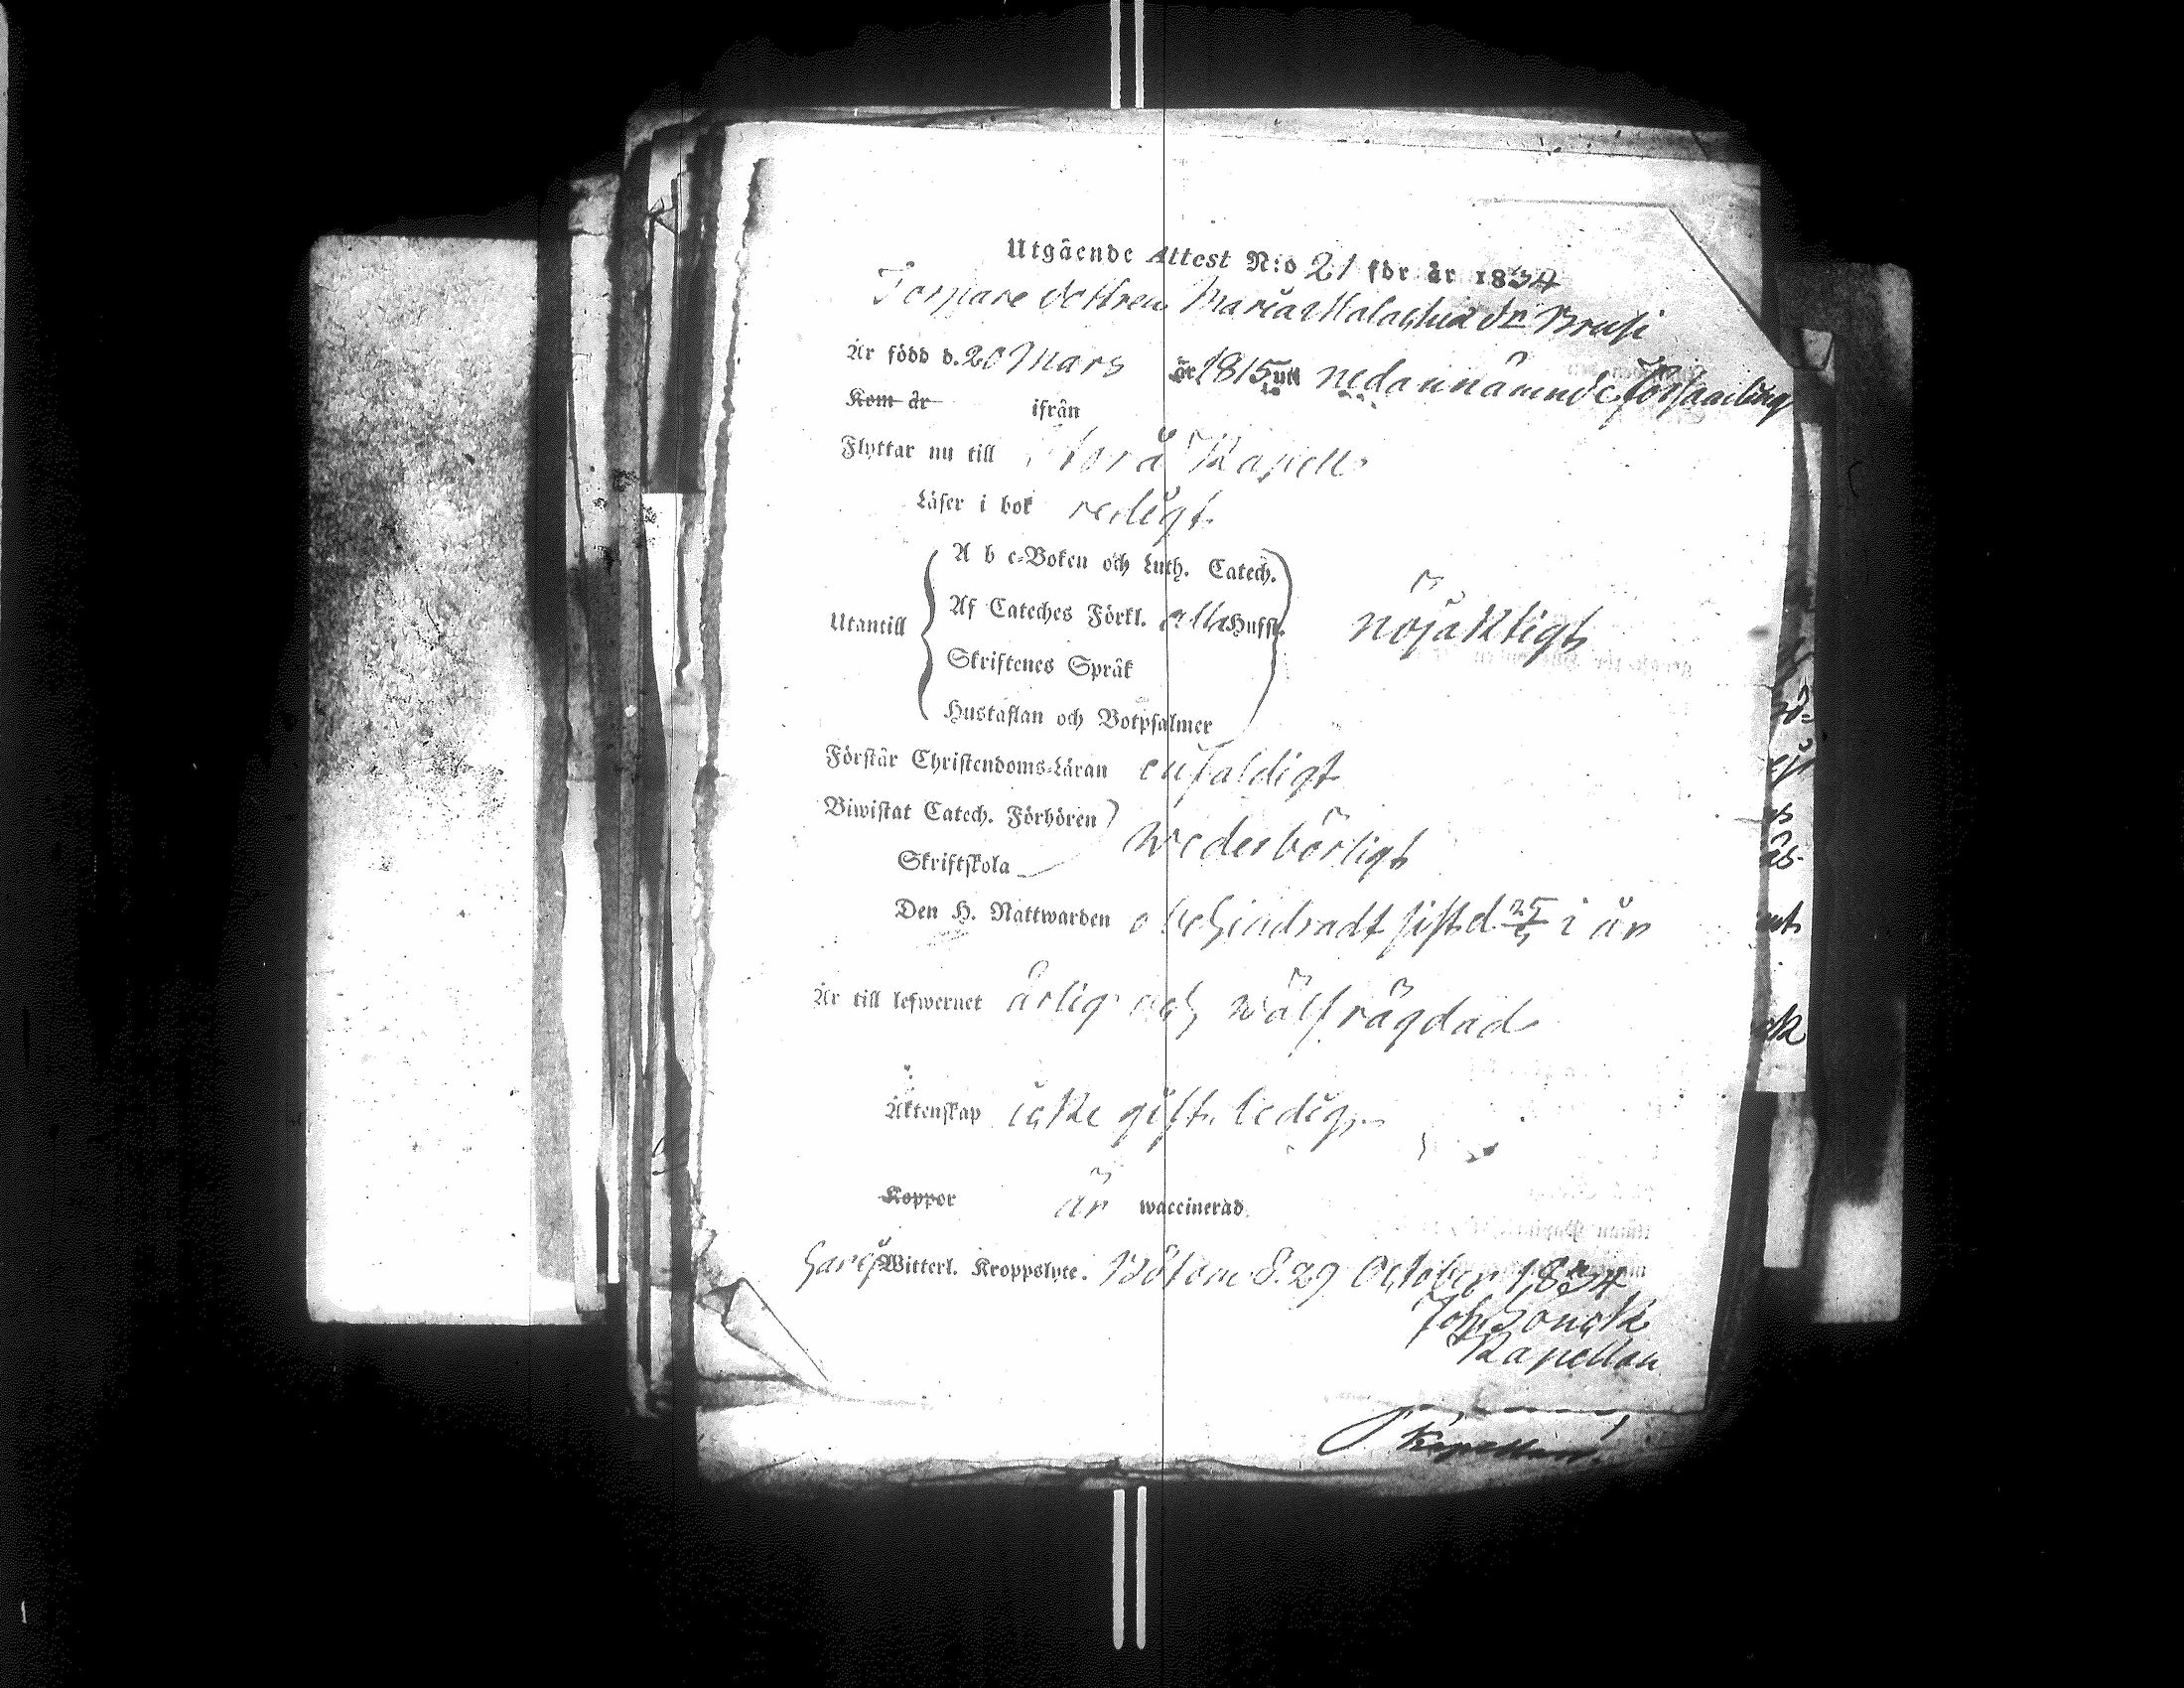 Utgående Attest N:o 21 för år 1834
Torpare dottren Maria Malachia dr Brusi
Är född d. 20 Mars år 1815 uti nedannämnde församling
Kom år ifrån
Flyttar nu till Storå Kapell
Läser i bok redigt
A b c-Boken och Luth. Catech.
Utantill Af Cateches Förkl. alla Hufst. nöjaktigt
Skriftenes Språk
Hustaflan och Botpsalmer
Förstår Christendoms-Läran enfaldigt
Biwistat Catech. Förhören
wederbörligt
Skriftskola
Den H. Nattwarden obehindradt sist d. i år
Är till lefwernet ärlig och wälfrägdad
Äktenskap icke gift, ledig
Koppor är waccinerad
Har ej Witterl. Kroppslyte. Bötom d. 29 October 1834
Joh. Sonck
Kapellan
Kapellan